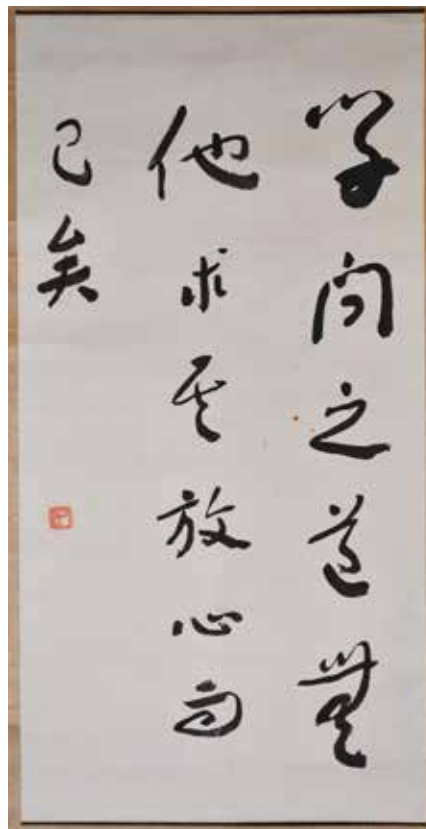 学问之道無
他求其放心而
已矣